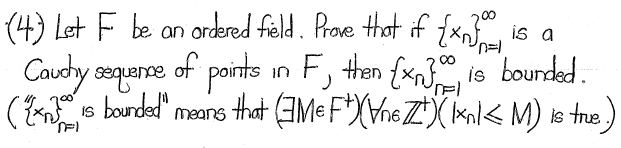 (4) Let F be an ordered field. Prove that if {xₙ}ₙ₌₁^∞ is a
Cauchy sequence of points in F, then {xₙ}ₙ₌₁^∞ is bounded.
("{xₙ}ₙ₌₁^∞ is bounded" means that (∃M∈F⁺)(∀n∈ℤ⁺)(|xₙ|≤M) is true.)